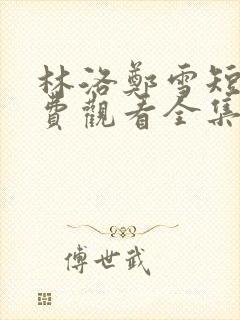 林洛鄭雪短
費觀看全集
傅世武